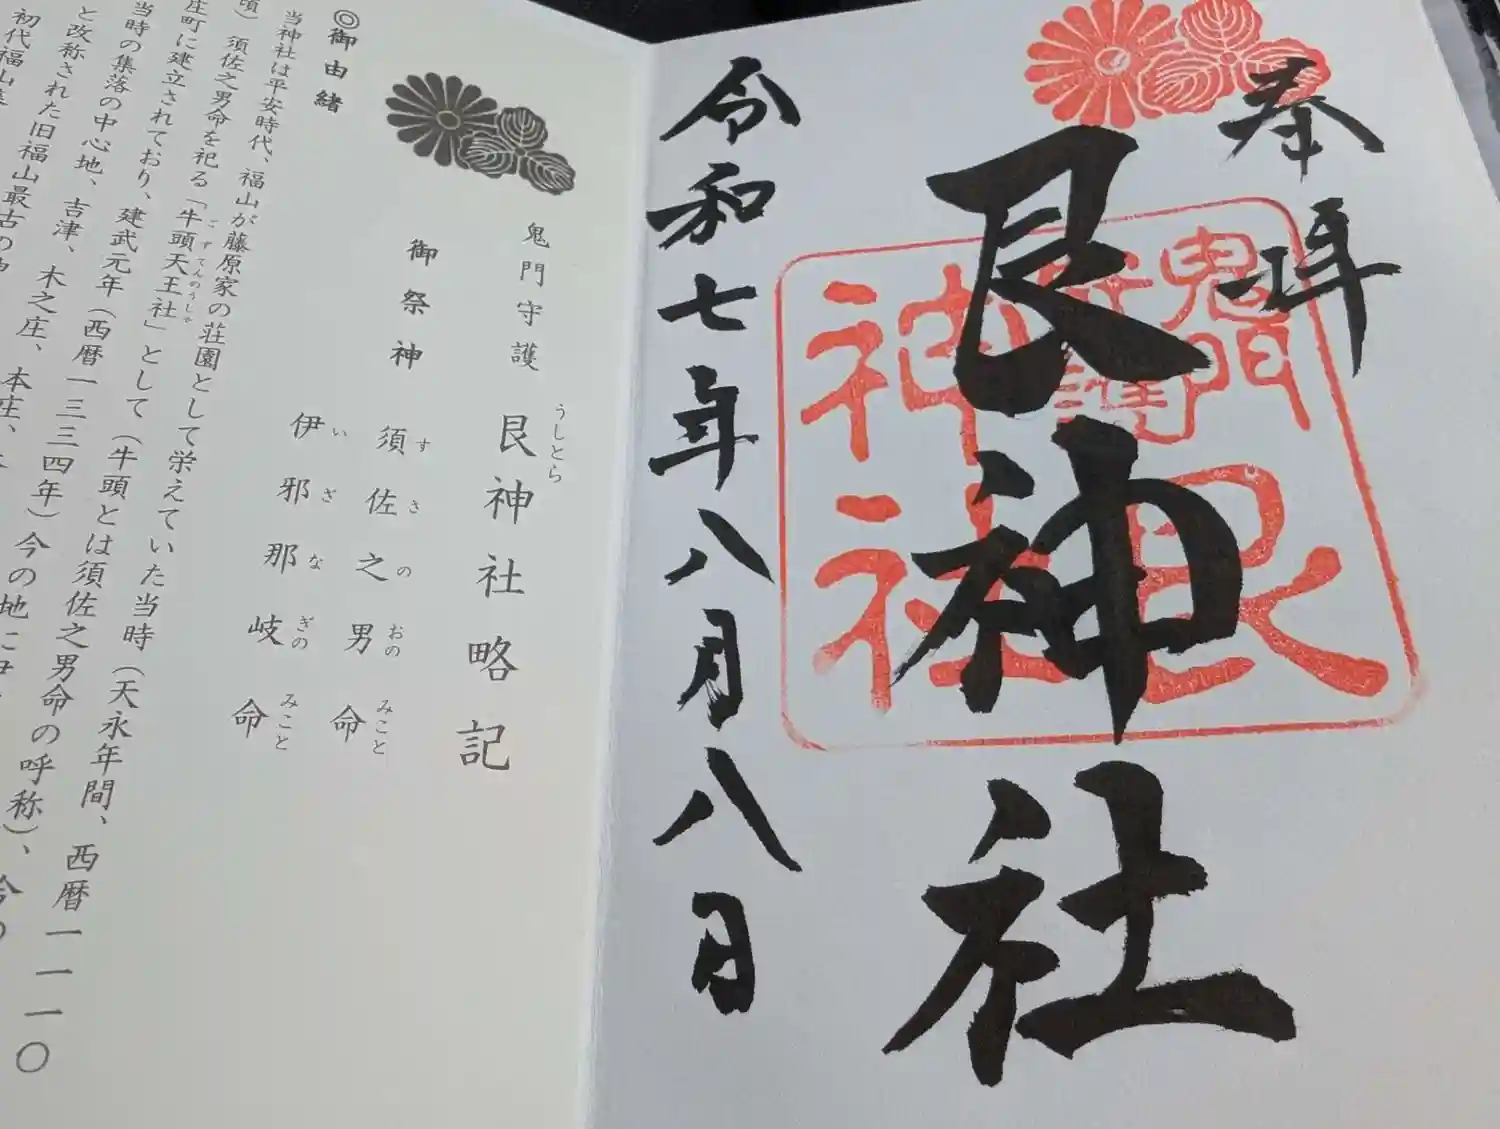 奉拝
艮神社
令和七年八月八日
鬼門
守護
艮
神社
鬼門守護
艮神社略記
うしとら
御祭神
須佐之男命
すさのおのみこと
伊邪那岐命
いざなぎのみこと
◎御由緒
当神社は平安時代、福山が藤原家の荘園として栄えていた当時(天永年間、西暦一一一〇
頃)須佐之男命を祀る「牛頭天王社」として(牛頭とは須佐之男命の呼称)、今の
ごずてんのうしゃ
庄町に建立されており、建武元年(西暦一三三四年)今の地に
当時の集落の中心地、吉津、木之庄、本庄、
と改称された旧福山最古の
初代福山